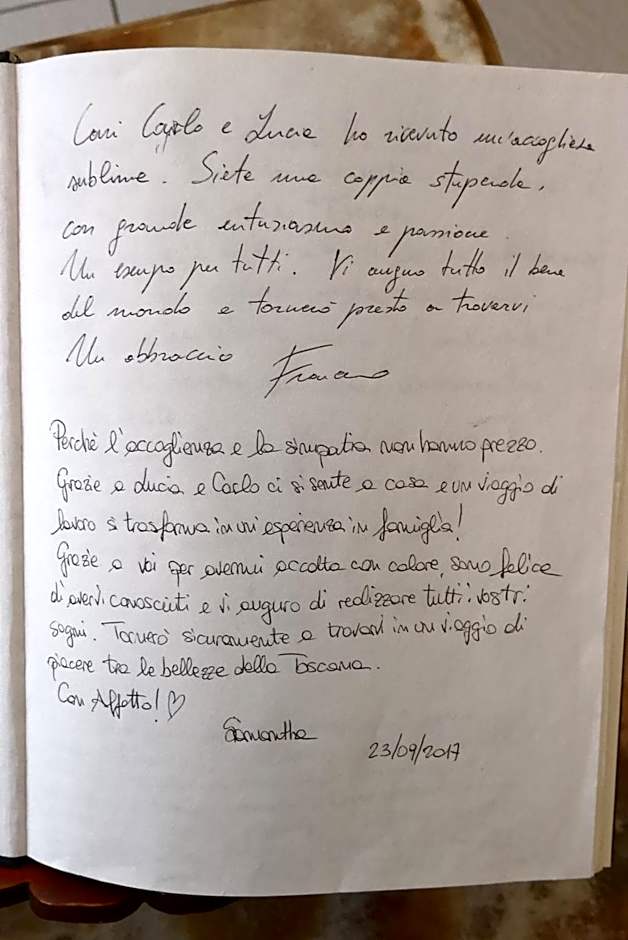 Cari Carlo e Lucia ho ricevuto un'accoglienza
sublime. Siete una coppia stupenda,
con grande entusiasmo e passione.
Un esempio per tutti. Vi auguro tutto il bene
del mondo e tornerò presto a trovarvi
Un abbraccio
Perchè l'accoglienza e la simpatia non hanno prezzo.
Grazie a Lucia e Carlo ci si sente a casa e un viaggio di
lavoro si trasforma in un'esperienza in famiglia!
Grazie a voi per avermi accolta con calore, sono felice
di avervi conosciuti e vi auguro di realizzare tutti i vostri
sogni. Tornerò sicuramente a trovarvi in un viaggio di
piacere tra le bellezze della Toscana.
Con Affetto! ♡
Samantha
23/09/2017